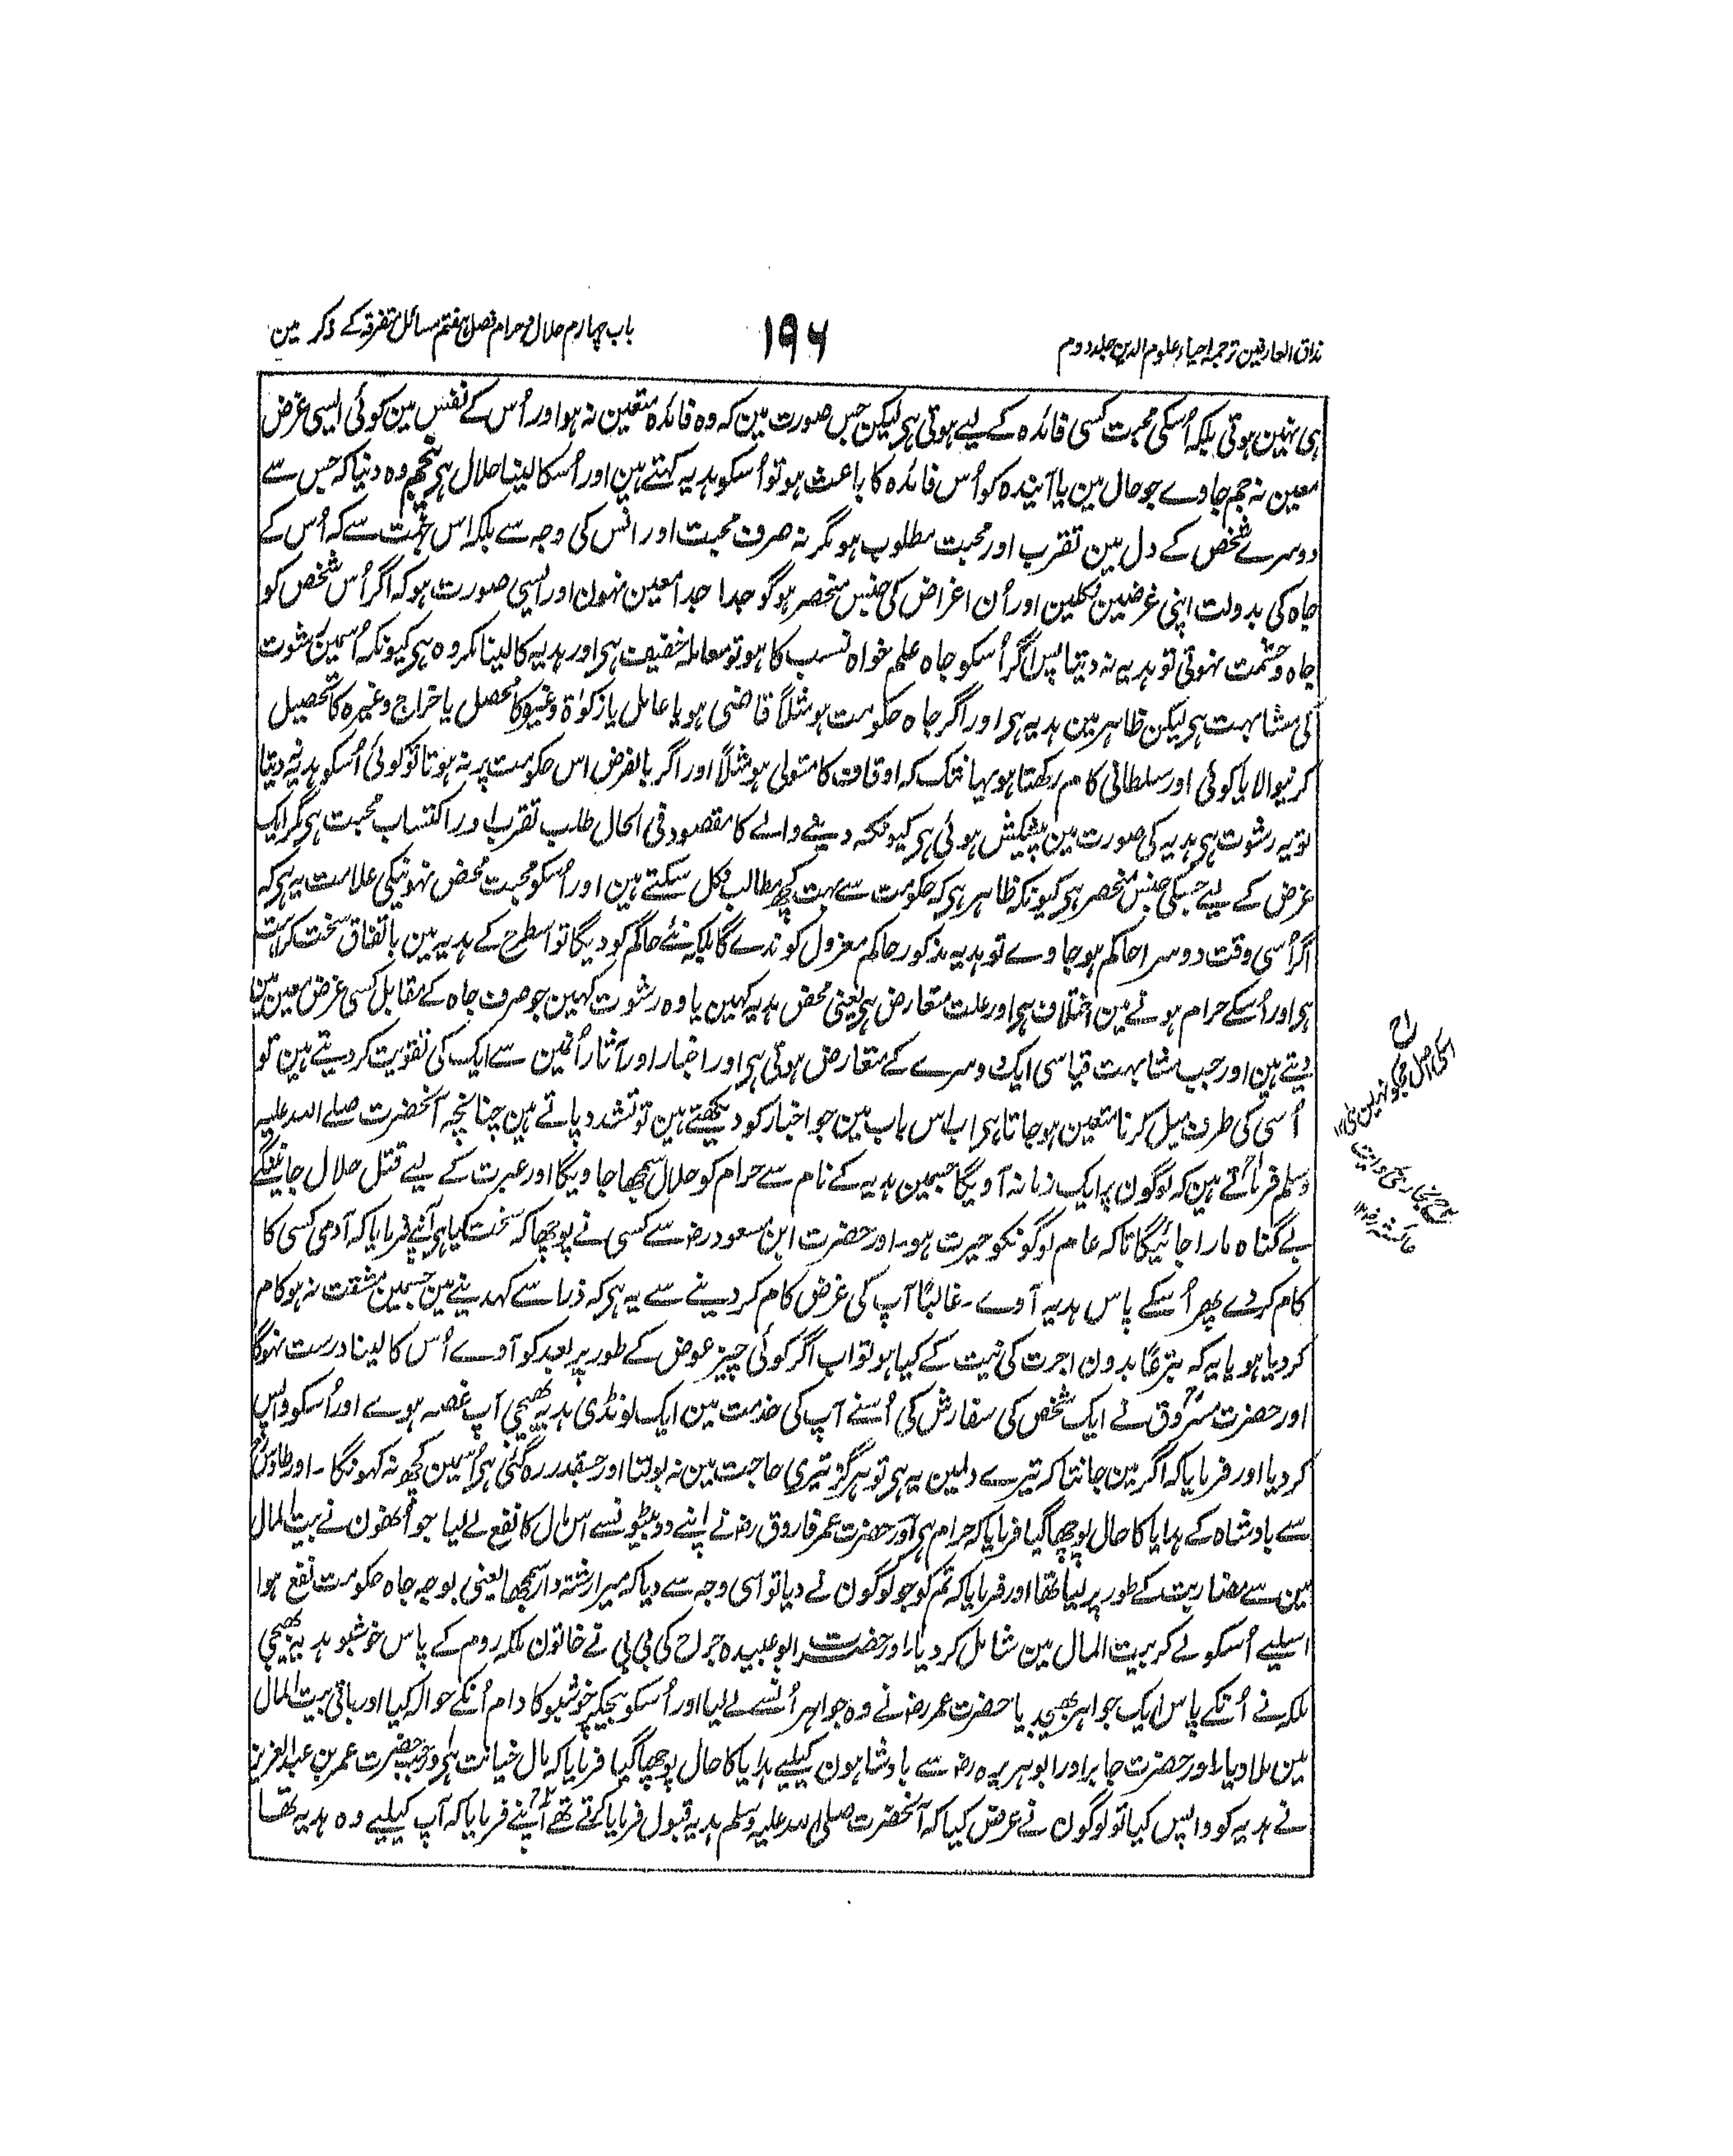 مذاق العارفین ترجمہ احیاء علوم الدین جلد دوم
۱۹۶
باب چہارم حلال و حرام فصل ہفتم مسائل متفرقہ کے ذکر مین
ہی نہین ہوتی بلکہ اُسکی محبت کسی فائدہ کے لیے ہوتی ہی لیکن جس صورت مین کہ وہ فائدہ متعین نہ ہو اور اُس کے نفس مین کوئی ایسی غرض
معین نہ جم جاوے جو حال مین یا آیندہ کو اُس فائدہ کا باعث ہو تو اُسکو ہدیہ کہتے ہین اور اُسکا لینا حلال ہی پنجم وہ دنیا کہ جس سے
دوسرے شخص کے دل مین تقرب اور محبت مطلوب ہو مگر نہ صرف محبت اور انس کی وجہ سے بلکہ اس جہت سے کہ اُس کے
جاہ کی بدولت اپنی غرضین نکلین اور اُن اغراض کی جنس منحصر ہو گو جدا جدا معین نہون اور ایسی صورت ہو کہ اگر اُس شخص کو
جاہ و حشمت نہوتی تو ہدیہ نہ دیتا پس اگر اُسکو جاہ علم خواہ نسب کا ہو تو معاملہ خفیف ہی اور ہدیہ کا لینا مکروہ ہی کیونکہ اُسمین رشوت
کی مشابہت ہی لیکن ظاہر مین ہدیہ ہی اور اگر جاہ حکومت ہو مثلاً قاضی ہو یا عامل یا زکوٰۃ وغیرہ کا محصل یا خراج وغیرہ کا تحصیل
کرنیوالا یا کوئی اور سلطانی کام رکھتا ہو یہانتک کہ اوقاف کا متولی ہو مثلاً اور اگر بالفرض اس حکومت پر نہ ہوتا تو کوئی اُسکو ہدیہ نہ دیتا
تو یہ رشوت ہی ہدیہ کی صورت مین پیشکش ہوئی ہی کیونکہ دینے والے کا مقصود فی الحال طلب تقرب اور اکتساب محبت ہی مگر ایک
غرض کے لیے جسکی جنس منحصر ہی کیونکہ ظاہر ہی کہ حکومت سے بہت کچھ مطالب نکل سکتے ہین اور اُسکو محبت محض نہونیکی علامت یہ ہی کہ
اگر اُسی وقت دوسرا حاکم ہو جاوے تو ہدیہ مذکور حاکم معزول کو ندے گا بلکہ نئے حاکم کو دیگا تو اسطرح کے ہدیہ مین باتفاق سخت کراہت
ہی اور اُسکے حرام ہونے مین اختلاف ہی اور علت متعارض ہی یعنی محض ہدیہ کہین یا وہ رشوت کہین جو صرف جاہ کے مقابل کسی غرض معین مین
دیتے ہین اور جب مشابہت قیاسی ایک دوسرے کے متعارض ہوتی ہی اور اخبار اور آثار اُنمین سے ایک کی تقویت کر دیتے ہین تو
اُسی کی طرف میل کرنا متعین ہو جاتا ہی اب اس باب مین جو اخبار کو دیکھتے ہین تو تشدد پاتے ہین چنانچہ آنحضرت صلے اللہ علیہ
وسلم فرماتے ہین کہ لوگون پر ایک زمانہ آویگا جسمین ہدیہ کے نام سے حرام کو حلال سمجھا جاویگا اور عبرت کے لیے قتل حلال جانینگے
بے گناہ مارا جائیگا تاکہ عام لوگونکو حیرت ہو۔ اور حضرت ابن مسعود رض سے کسی نے پوچھا کہ سخت کیا ہی آپنے فرمایا کہ آدمی کسی کا
کام کردے پھر اُسکے پاس ہدیہ آوے۔ غالباً آپ کی غرض کام کر دینے سے یہ ہی کہ ذرا سے کہدینے مین جسمین مشقت نہ ہو کام
کر دیا ہو یا یہ کہ تبرعًا بدون اجرت کی نیت کے کیا ہو تو اب اگر کوئی چیز عوض کے طور پر بعد کو آوے اُس کا لینا درست نہوگا
اور حضرت مسروق نے ایک شخص کی سفارش کی اُسنے آپ کی خدمت مین ایک لونڈی ہدیہ بھیجی آپ غصہ ہوے اور اُسکو واپس
کر دیا اور فرمایا کہ اگر مین جانتا کہ تیرے دلمین یہ ہی تو ہرگز تیری حاجت مین نہ بولتا اور جسقدر رہ گئی ہی اُسمین کچھ نہ کہونگا۔ اور طاؤس
سے بادشاہ کے ہدایا کا حال پوچھا گیا فرمایا کہ حرام ہی اور حضرت عمر فاروق رض نے اپنے دو بیٹونسے اُس مال کا نفع لے لیا جو اُنھون نے بیت المال
مین سے مضاربت کے طور پر لیا تھا اور فرمایا کہ تمکو جو لوگون نے دیا تو اسی وجہ سے دیا کہ میرا رشتہ دار سمجھا یعنی بوجہ جاہ حکومت نفع ہوا
اسلیے اُسکو لے کر بیت المال مین شامل کر دیا اور حضرت ابو عبیدہ جراح کی بی بی نے خاتون ملکہ روم کے پاس خوشبو ہدیہ بھیجی
ملکہ نے اُنکے پاس ایک جواہر بھیجدیا حضرت عمر رض نے وہ جواہر اُنسے لے لیا اور اُسکو بیچکر خوشبو کا دام اُنکے حوالہ کیا اور باقی بیت المال
مین ملا دیا اور حضرت جابر اور ابو ہریرہ رض سے بادشاہون کیلیے ہدایا کا حال پوچھا گیا فرمایا کہ مال خیانت ہی اور جب حضرت عمر بن عبد العزیز
نے ہدیہ کو واپس کیا تو لوگون نے عرض کیا کہ آنحضرت صلی اللہ علیہ وسلم ہدیہ قبول فرمایا کرتے تھے آپنے فرمایا کہ آپ کیلیے وہ ہدیہ تھا
اسکی اصل مجکو نہین ملی ۱۲
بخاری روایت
عائشہ رض ۱۲